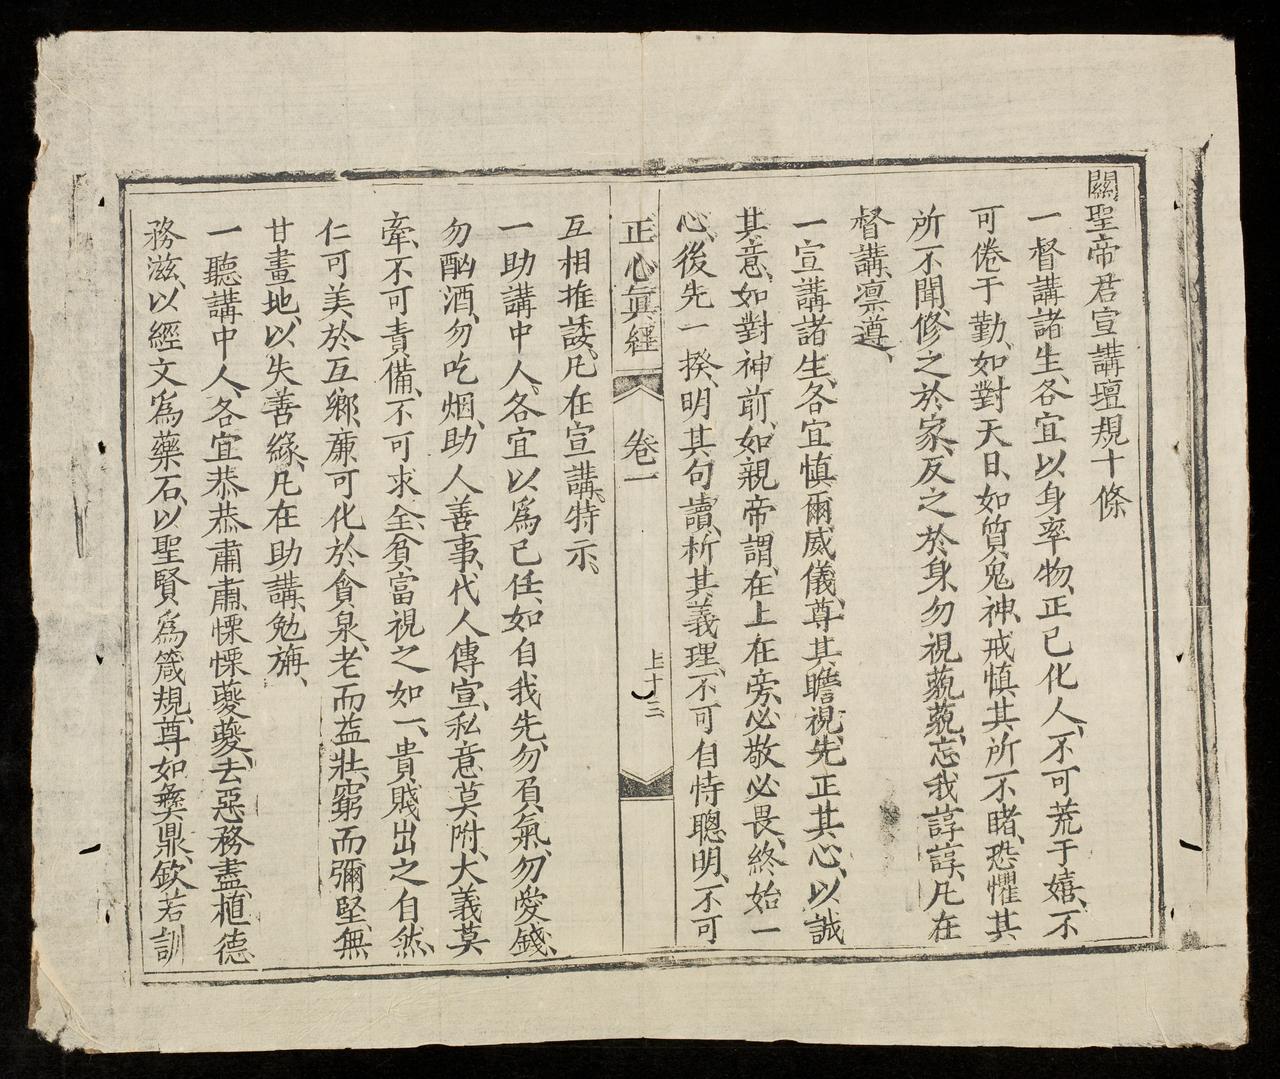 關聖帝君宣講壇規十條
一督講諸生、各宜以身率物、正己化人、不可荒于嬉、不
可倦于勤、如對天日、如質鬼神、戒慎其所不睹、恐懼其
所不聞、修之於家、反之於身、勿視藐藐、忘我諄諄、凡在
督講、凛遵、
一宣講諸生、各宜慎爾威儀、尊其瞻視、先正其心、以誠
其意、如對神前、如親帝謂、在上在旁、必敬必畏、終始一
心、後先一揆、明其句讀、析其義理、不可自恃聰明、不可
正心眞經 卷一 上十三
互相推諉、凡在宣講、特示、
一助講中人、各宜以爲己任、如自我先、勿負氣、勿愛錢、
勿酗酒、勿吃烟、助人善事、代人傳宣、私意莫附、大義莫
牽、不可責備、不可求全、貧富視之如一、貴賤出之自然、
仁可美於互鄉、廉可化於貪泉、老而益壯、窮而彌堅、無
甘畫地、以失善緣、凡在助講、勉旃、
一聽講中人、各宜恭恭肅肅、慄慄夔夔、去惡務盡、植德
務滋、以經文爲藥石、以聖賢爲箴規、尊如彝鼎、欽若訓